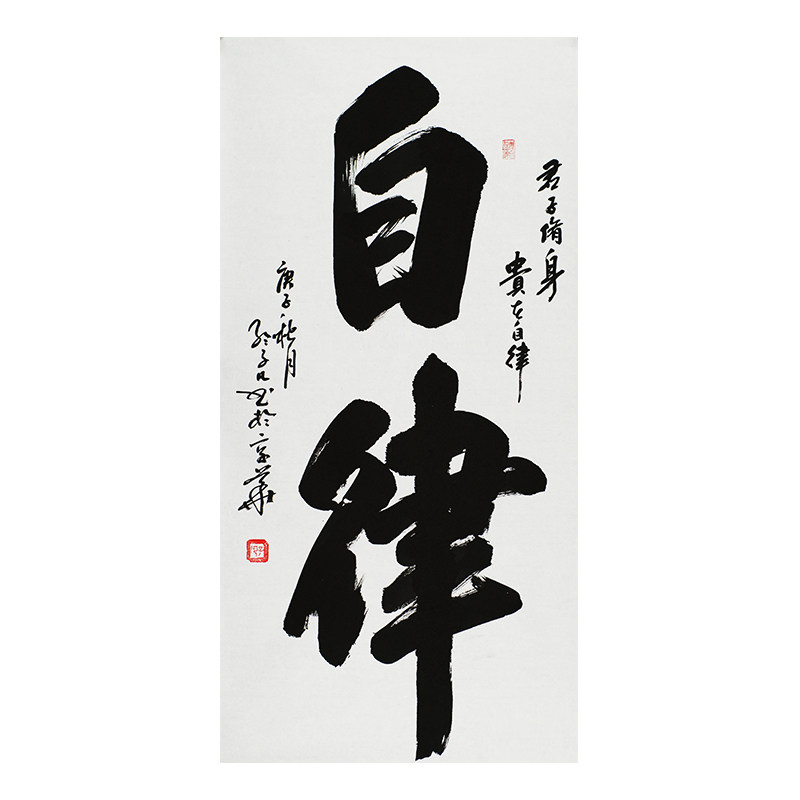 君子脩身
貴在自律
自律
庚子秋月
书於京華